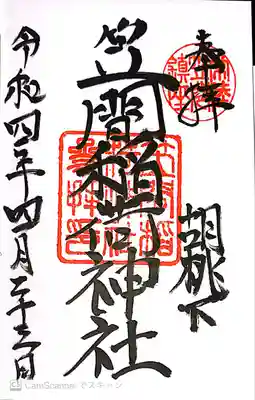 奉拝
胡桃下
笠間稲荷神社
令和四年四月二十三日
CamScanner でスキャン